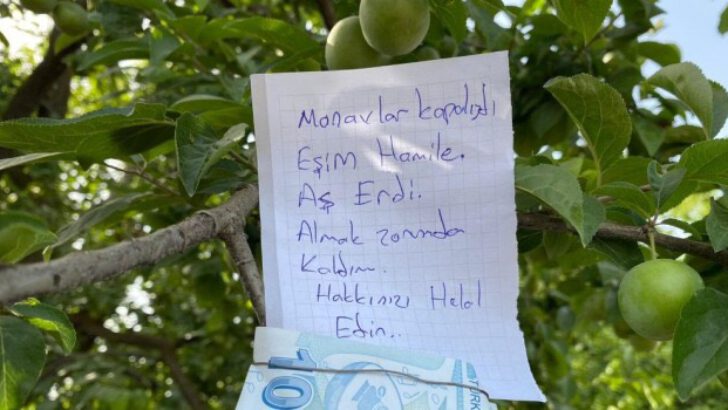 Manavlar kapalıydı
Eşim Hamile.
Aş Erdi.
Almak zorunda
Kaldım.
Hakkınızı Helal
Edin..
100
TÜRK